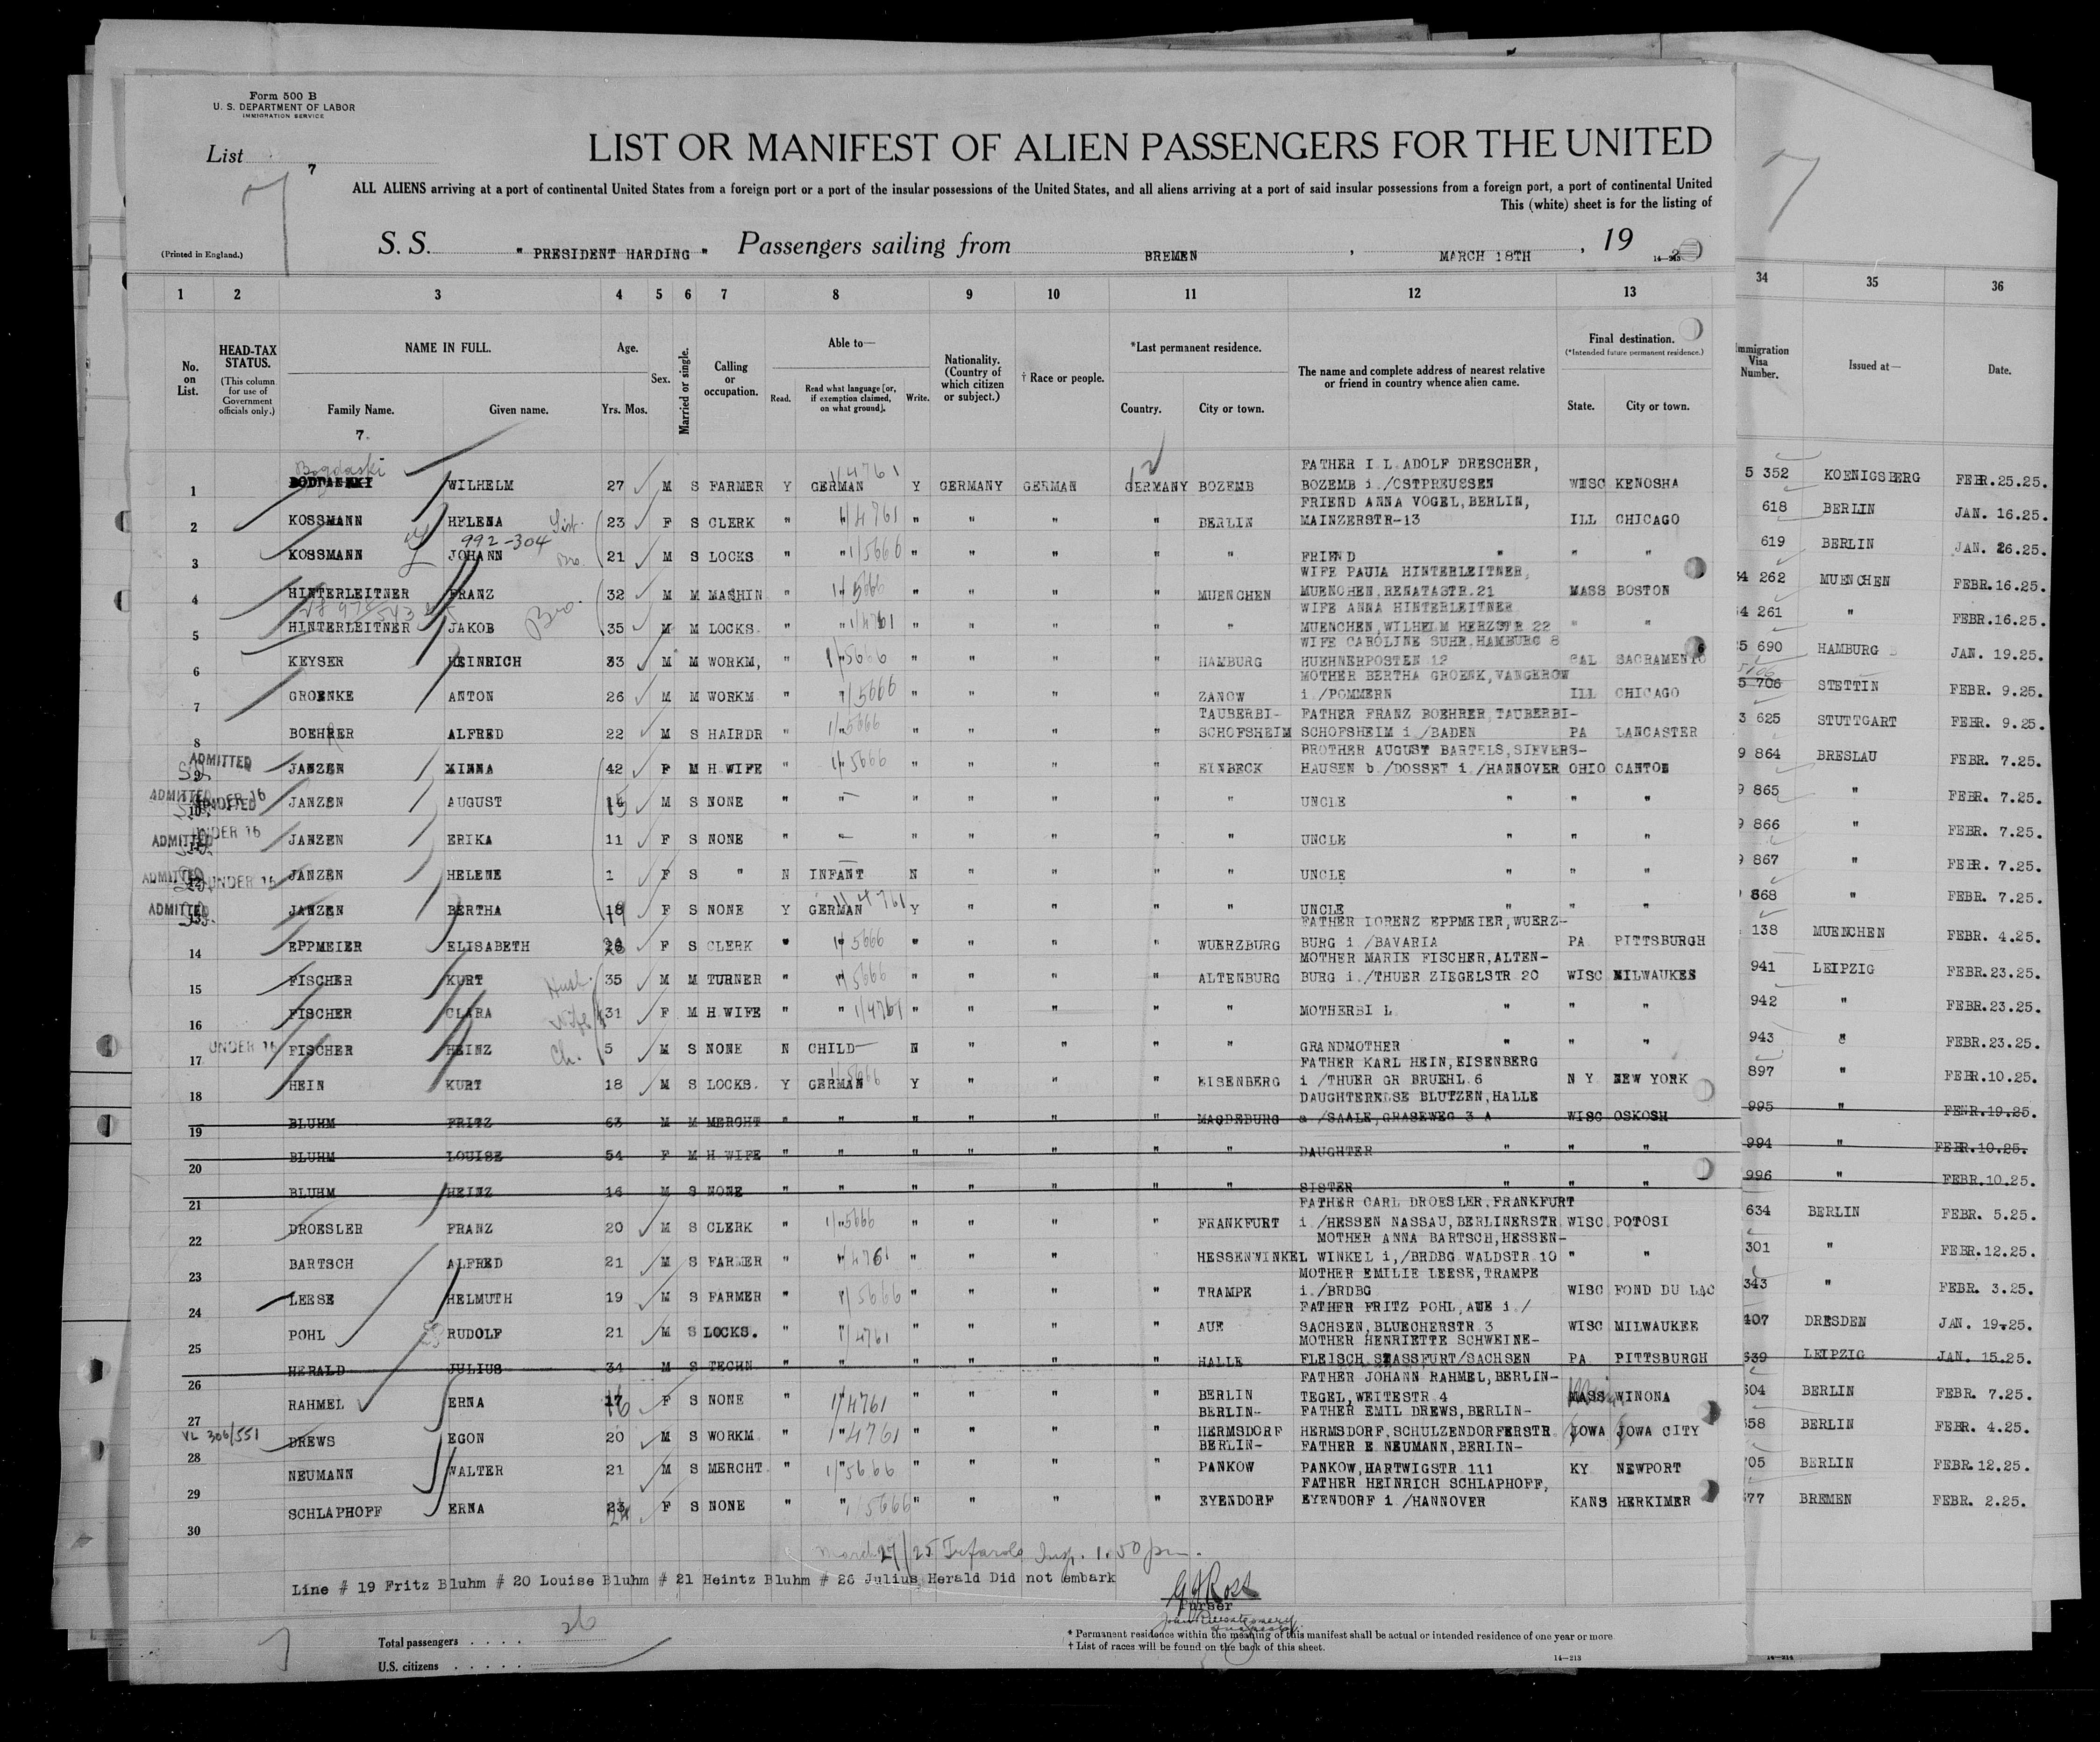 Form 500 B
U. S. DEPARTMENT OF LABOR
IMMIGRATION SERVICE
List 7
7
7
LIST OR MANIFEST OF ALIEN PASSENGERS FOR THE UNITED
ALL ALIENS arriving at a port of continental United States from a foreign port or a port of the insular possessions of the United States, and all aliens arriving at a port of said insular possessions from a foreign port, a port of continental United
This (white) sheet is for the listing of
(Printed in England.)
S. S. " PRESIDENT HARDING " Passengers sailing from BREMEN , MARCH 18TH , 19
1 2 3 4 5 6 7 8 9 10 11 12 13 34 35 36
No. on List.
HEAD-TAX STATUS. (This column for use of Government officials only.)
NAME IN FULL.
Family Name. Given name.
Age. Yrs. Mos.
Sex.
Married or single.
Calling or occupation.
Able to—
Read. Read what language [or, if exemption claimed, on what ground]. Write.
Nationality. (Country of which citizen or subject.)
† Race or people.
*Last permanent residence.
Country. City or town.
The name and complete address of nearest relative or friend in country whence alien came.
Final destination.
(*Intended future permanent residence.)
State. City or town.
Immigration Visa Number.
Issued at—
Date.
7.
Bogdaski
FATHER I.L. ADOLF DRESCHER,
1 WILHELM 27 M S FARMER Y GERMAN 1/4761 Y GERMANY GERMAN GERMANY BOZEMB BOZEMB i./OSTPREUSSEN WISC KENOSHA 5 352 KOENIGSBERG FEBR.25.25.
FRIEND ANNA VOGEL, BERLIN,
2 KOSSMANN HELENA Sist. 23 F S CLERK " " 1/4761 " " " " BERLIN MAINZERSTR-13 ILL CHICAGO 618 BERLIN JAN. 16.25.
992-304
3 KOSSMANN JOHANN Bro. 21 M S LOCKS " " 1/5666 " " " " " FRIEND " " " 619 BERLIN JAN. 26.25.
WIFE PAULA HINTERLEITNER,
4 HINTERLEITNER FRANZ 32 M M MASHIN " " 1/5666 " " " " MUENCHEN MUENCHEN, RENATASTR.21 MASS BOSTON 34 262 MUENCHEN FEBR.16.25.
Bro.
WIFE ANNA HINTERLEITNER
5 HINTERLEITNER JAKOB 35 M M LOCKS. " " 1/4761 " " " " " MUENCHEN, WILHELM HERZSTR 22 " " 4 261 " FEBR.16.25.
WIFE CAROLINE SUHR, HAMBURG 8
6 KEYSER HEINRICH 33 M M WORKM, " " 1/5666 " " " " HAMBURG HUEHNERPOSTEN 12 CAL SACRAMENTO 25 690 HAMBURG JAN. 19.25.
MOTHER BERTHA GROENK, VANGEROW
7 GROENKE ANTON 26 M M WORKM " " 1/5666 " " " " ZANOW i./POMMERN ILL CHICAGO 5 706 STETTIN FEBR. 9.25.
TAUBERBI- FATHER FRANZ BOEHRER, TAUBERBI-
8 BOEHRER ALFRED 22 M S HAIRDR " " 1/5666 " " " " SCHOFSHEIM SCHOFSHEIM i./BADEN PA LANCASTER 3 625 STUTTGART FEBR. 9.25.
BROTHER AUGUST BARTELS, SIEVERS-
9 ADMITTED JANZEN MINNA 42 F M H.WIFE " " 1/5666 " " " " EINBECK HAUSEN b./DOSSET i./HANNOVER OHIO CANTON 9 864 BRESLAU FEBR. 7.25.
10 ADMITTED UNDER 16 JANZEN AUGUST 15 M S NONE " " " " " " " UNCLE " " " 9 865 " FEBR. 7.25.
11 ADMITTED UNDER 16 JANZEN ERIKA 11 F S NONE " — " " " " " UNCLE " " " 9 866 " FEBR. 7.25.
12 ADMITTED UNDER 16 JANZEN HELENE 1 F S " N INFANT N " " " " UNCLE " " " 9 867 " FEBR. 7.25.
13 ADMITTED JANZEN BERTHA 18 F S NONE Y GERMAN 1/4761 Y " " " " UNCLE " " " 868 " FEBR. 7.25.
FATHER LORENZ EPPMEIER, WUERZ-
14 EPPMEIER ELISABETH F S CLERK " " 1/5666 " " " " WUERZBURG BURG i./BAVARIA PA PITTSBURGH 138 MUENCHEN FEBR. 4.25.
MOTHER MARIE FISCHER, ALTEN-
15 FISCHER KURT Husb. 35 M M TURNER " " 1/5666 " " " " ALTENBURG BURG i./THUER ZIEGELSTR 20 WISC MILWAUKEE 941 LEIPZIG FEBR.23.25.
16 FISCHER CLARA Wife 31 F M H.WIFE " " 1/4761 " " " " " MOTHERBI L " " " 942 " FEBR.23.25.
17 UNDER 16 FISCHER HEINZ Ch. 5 M S NONE N CHILD N " " " " GRANDMOTHER " " " 943 " FEBR.23.25.
FATHER KARL HEIN, EISENBERG
18 HEIN KURT 18 M S LOCKS. Y GERMAN 1/5666 Y " " " EISENBERG i./THUER GR BRUEHL 6 N Y. NEW YORK 897 " FEBR.10.25.
DAUGHTERELSE BLUTZEN, HALLE
19 BLUHM FRITZ 63 M M MERCHT " " " " " " MAGDEBURG a./SAALE, GRASEWEG 3 A WISC OSKOSH 995 " FENR.19.25.
20 BLUHM LOUISE 54 F M H WIFE " " " " " " " DAUGHTER " " " 994 " FEBR.10.25.
21 BLUHM HEINZ 16 M S NONE " " " " " " " SISTER " " " 996 " FEBR.10.25.
FATHER CARL DROESLER, FRANKFURT
22 DROESLER FRANZ 20 M S CLERK " " 1/5666 " " " " FRANKFURT i./HESSEN NASSAU, BERLINERSTR. WISC POTOSI 634 BERLIN FEBR. 5.25.
MOTHER ANNA BARTSCH, HESSEN-
23 BARTSCH ALFRED 21 M S FARMER " " 4761 " " " HESSENWINKEL WINKEL i,/BRDBG WALDSTR 10 " " 301 " FEBR.12.25.
MOTHER EMILIE LEESE, TRAMPE
24 LEESE HELMUTH 19 M S FARMER " " 1/5666 " " " " TRAMPE i./BRDBG WISC FOND DU LAC 343 " FEBR. 3.25.
FATHER FRITZ POHL, AUE i./
25 POHL RUDOLF 21 M S LOCKS. " " 1/4761 " " " " AUE SACHSEN, BLUECHERSTR 3 WISC MILWAUKEE 407 DRESDEN JAN. 19.25.
MOTHER HENRIETTE SCHWEINE-
26 HERALD JULIUS 34 M S TECHN " " " " " " HALLE FLEISCH STASSFURT/SACHSEN PA PITTSBURGH 639 LEIPZIG JAN. 15.25.
FATHER JOHANN RAHMEL, BERLIN-
27 RAHMEL ERNA 16 F S NONE " " 1/4761 " " " " BERLIN TEGEL, WEITESTR 4 MASS WINONA 604 BERLIN FEBR. 7.25.
VL 306/551
BERLIN- FATHER EMIL DREWS, BERLIN-
28 DREWS EGON 20 M S WORKM " " 1/4761 " " " " HERMSDORF HERMSDORF, SCHULZENDORFERSTR IOWA IOWA CITY 658 BERLIN FEBR. 4.25.
BERLIN- FATHER E NEUMANN, BERLIN-
29 NEUMANN WALTER 21 M S MERCHT " " 1/5666 " " " " PANKOW PANKOW, HARTWIGSTR 111 KY NEWPORT 705 BERLIN FEBR.12.25.
FATHER HEINRICH SCHLAPHOFF,
30 SCHLAPHOFF ERNA 23 24 F S NONE " " 1/5666 " " " " EYENDORF EYENDORF i./HANNOVER KANS HERKIMER 677 BREMEN FEBR. 2.25.
March 27/25 Insp. 1.50 pm.
Line # 19 Fritz Bluhm # 20 Louise Bluhm # 21 Heintz Bluhm # 26 Julius Herald Did not embark
G J Ross
Purser
Total passengers . . . . 26
U.S. citizens . . . . .
7
* Permanent residence within the meaning of this manifest shall be actual or intended residence of one year or more
† List of races will be found on the back of this sheet.
14—213
14—214